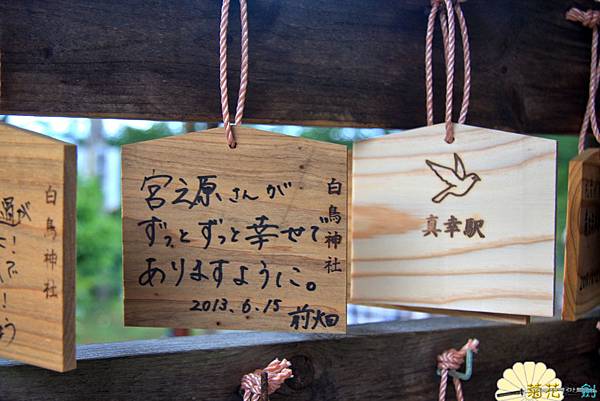 白鳥神社
宮之原さんが
ずっとずっと幸せで
ありますように。
2013.6.15
前畑
白鳥神社
真幸駅
落花一劍